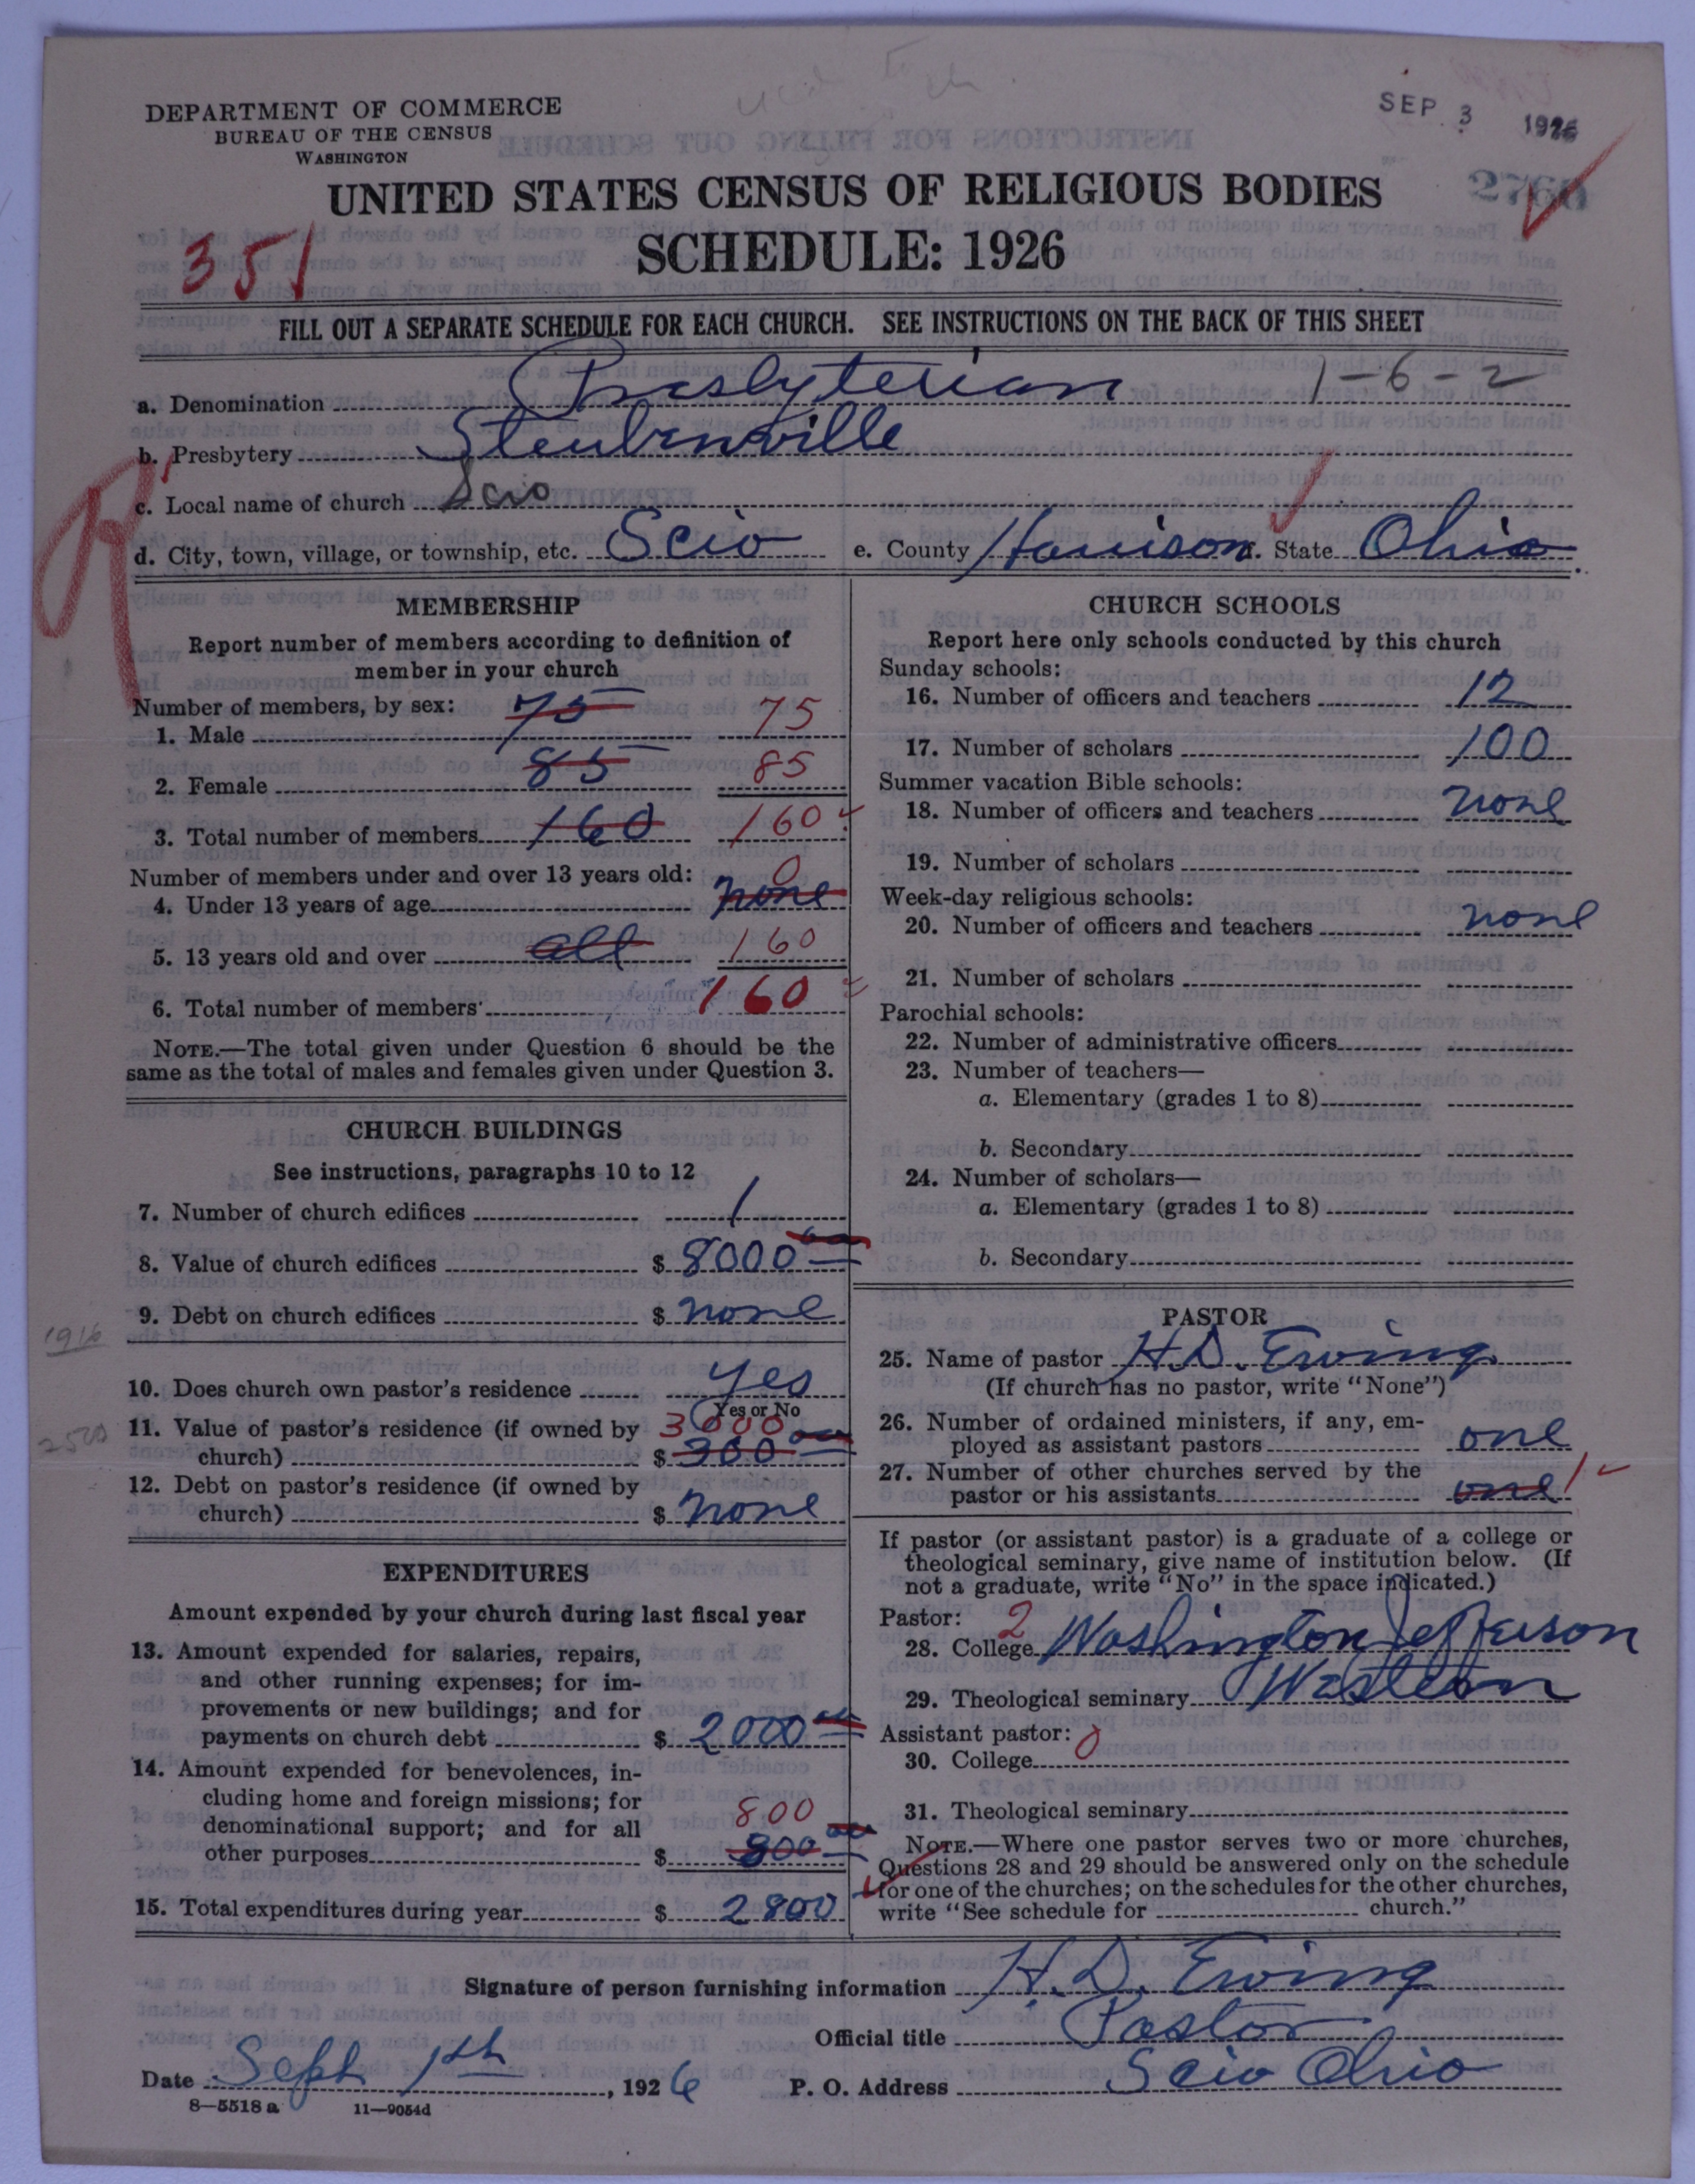 DEPARTMENT OF COMMERCE
BUREAU OF THE CENSUS
WASHINGTON
SEP 3 1926
2760
UNITED STATES CENSUS OF RELIGIOUS BODIES
SCHEDULE: 1926
351
FILL OUT A SEPARATE SCHEDULE FOR EACH CHURCH. SEE INSTRUCTIONS ON THE BACK OF THIS SHEET
a. Denomination Presbyterian 1-6-2
b. Presbytery Steubenville
c. Local name of church Scio
d. City, town, village, or township, etc. Scio e. County Harrison f. State Ohio
R
MEMBERSHIP
Report number of members according to definition of
member in your church
Number of members, by sex:
1. Male 75 75
2. Female 85 85
3. Total number of members 160 160
Number of members under and over 13 years old: 0
4. Under 13 years of age none
5. 13 years old and over all 160
6. Total number of members 160
NOTE.—The total given under Question 6 should be the
same as the total of males and females given under Question 3.
CHURCH BUILDINGS
See instructions, paragraphs 10 to 12
7. Number of church edifices 1
8. Value of church edifices $ 8000 00
9. Debt on church edifices $ none
1916
10. Does church own pastor's residence yes
Yes or No
11. Value of pastor's residence (if owned by 3000
2500
church) $ 300 00
12. Debt on pastor's residence (if owned by
church) $ none
EXPENDITURES
Amount expended by your church during last fiscal year
13. Amount expended for salaries, repairs,
and other running expenses; for im-
provements or new buildings; and for
payments on church debt $ 2000 00
14. Amount expended for benevolences, in-
cluding home and foreign missions; for
denominational support; and for all 800
other purposes $ 800 00
15. Total expenditures during year $ 2800
CHURCH SCHOOLS
Report here only schools conducted by this church
Sunday schools:
16. Number of officers and teachers 12
17. Number of scholars 100
Summer vacation Bible schools:
18. Number of officers and teachers none
19. Number of scholars
Week-day religious schools:
20. Number of officers and teachers none
21. Number of scholars
Parochial schools:
22. Number of administrative officers
23. Number of teachers—
a. Elementary (grades 1 to 8)
b. Secondary
24. Number of scholars—
a. Elementary (grades 1 to 8)
b. Secondary
PASTOR
25. Name of pastor H. D. Ewing
(If church has no pastor, write "None")
26. Number of ordained ministers, if any, em-
ployed as assistant pastors one
27. Number of other churches served by the
pastor or his assistants one 1
If pastor (or assistant pastor) is a graduate of a college or
theological seminary, give name of institution below. (If
not a graduate, write "No" in the space indicated.)
Pastor: 2
28. College Washington Jefferson
29. Theological seminary Western
Assistant pastor: 0
30. College
31. Theological seminary
NOTE.—Where one pastor serves two or more churches,
Questions 28 and 29 should be answered only on the schedule
for one of the churches; on the schedules for the other churches,
write "See schedule for church."
Signature of person furnishing information H. D. Ewing
Official title Pastor
Date Sept 1th, 1926 P. O. Address Scio Ohio
8—5518 a 11—9054d